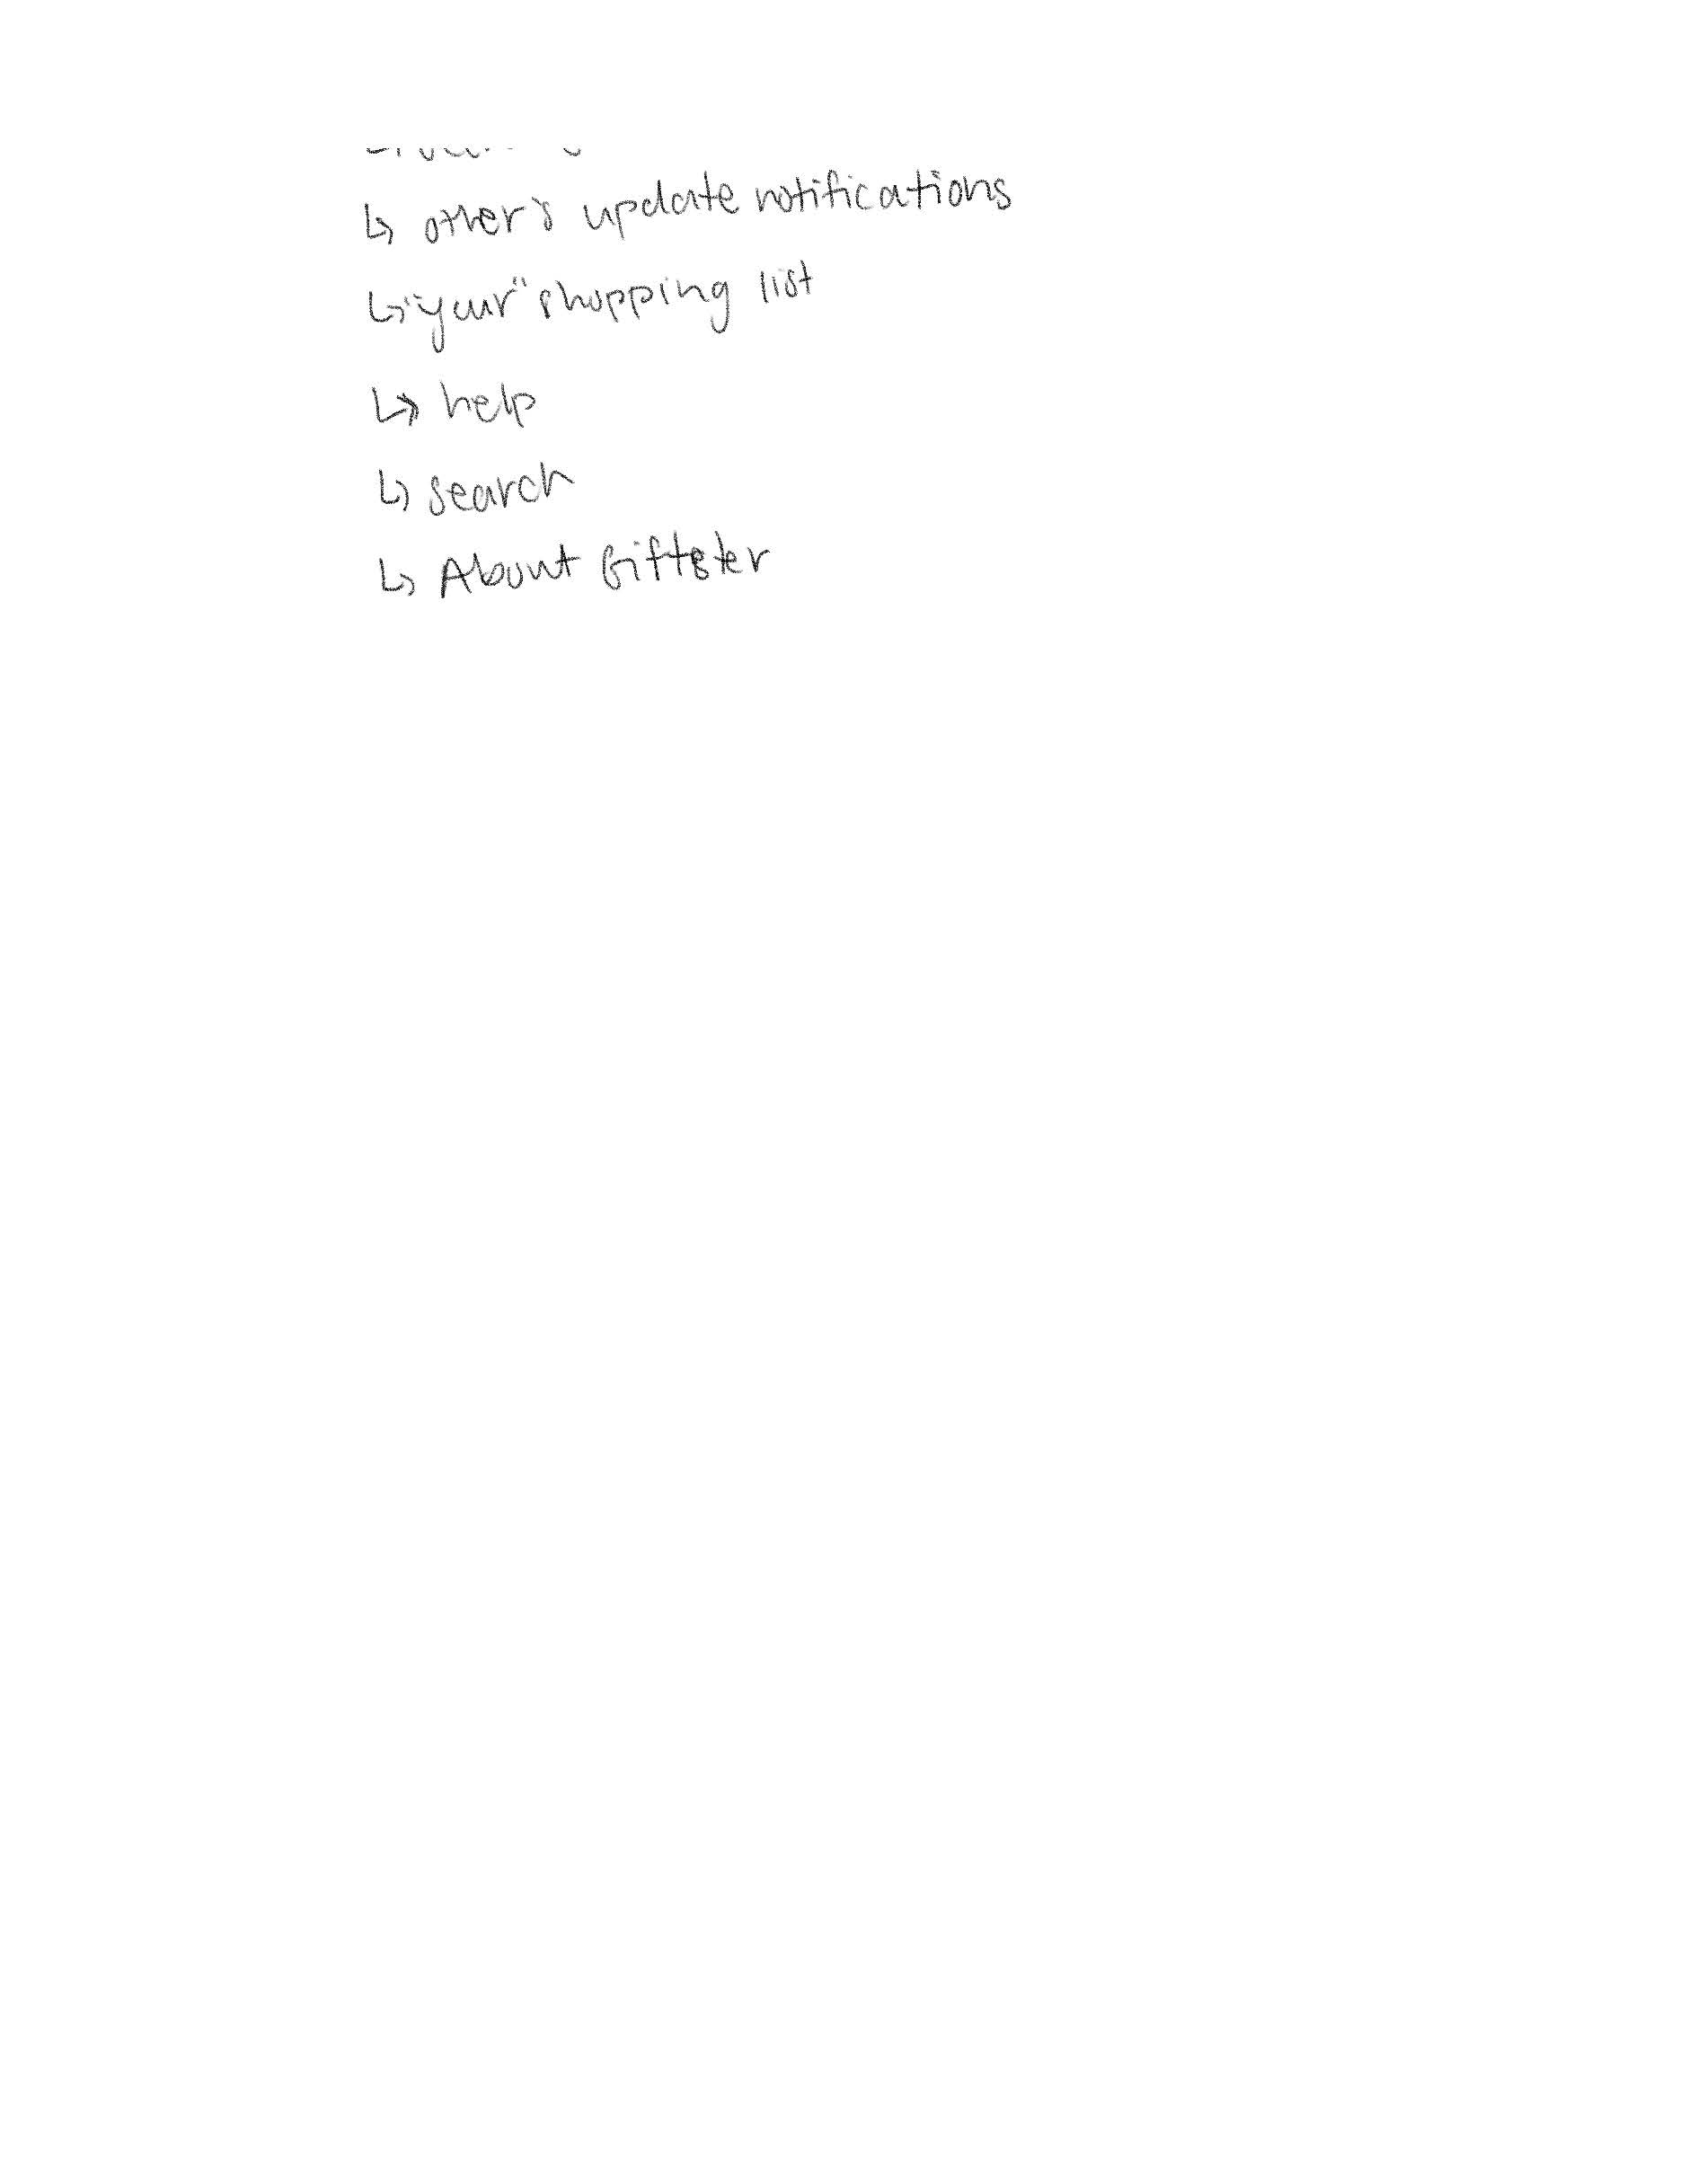 ↳ other's update notifications
↳ "your" shopping list
↳ help
↳ search
↳ About Giftster